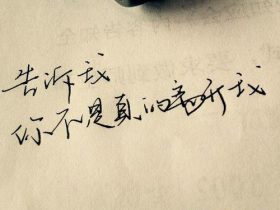 告诉我
你不是真的離开我